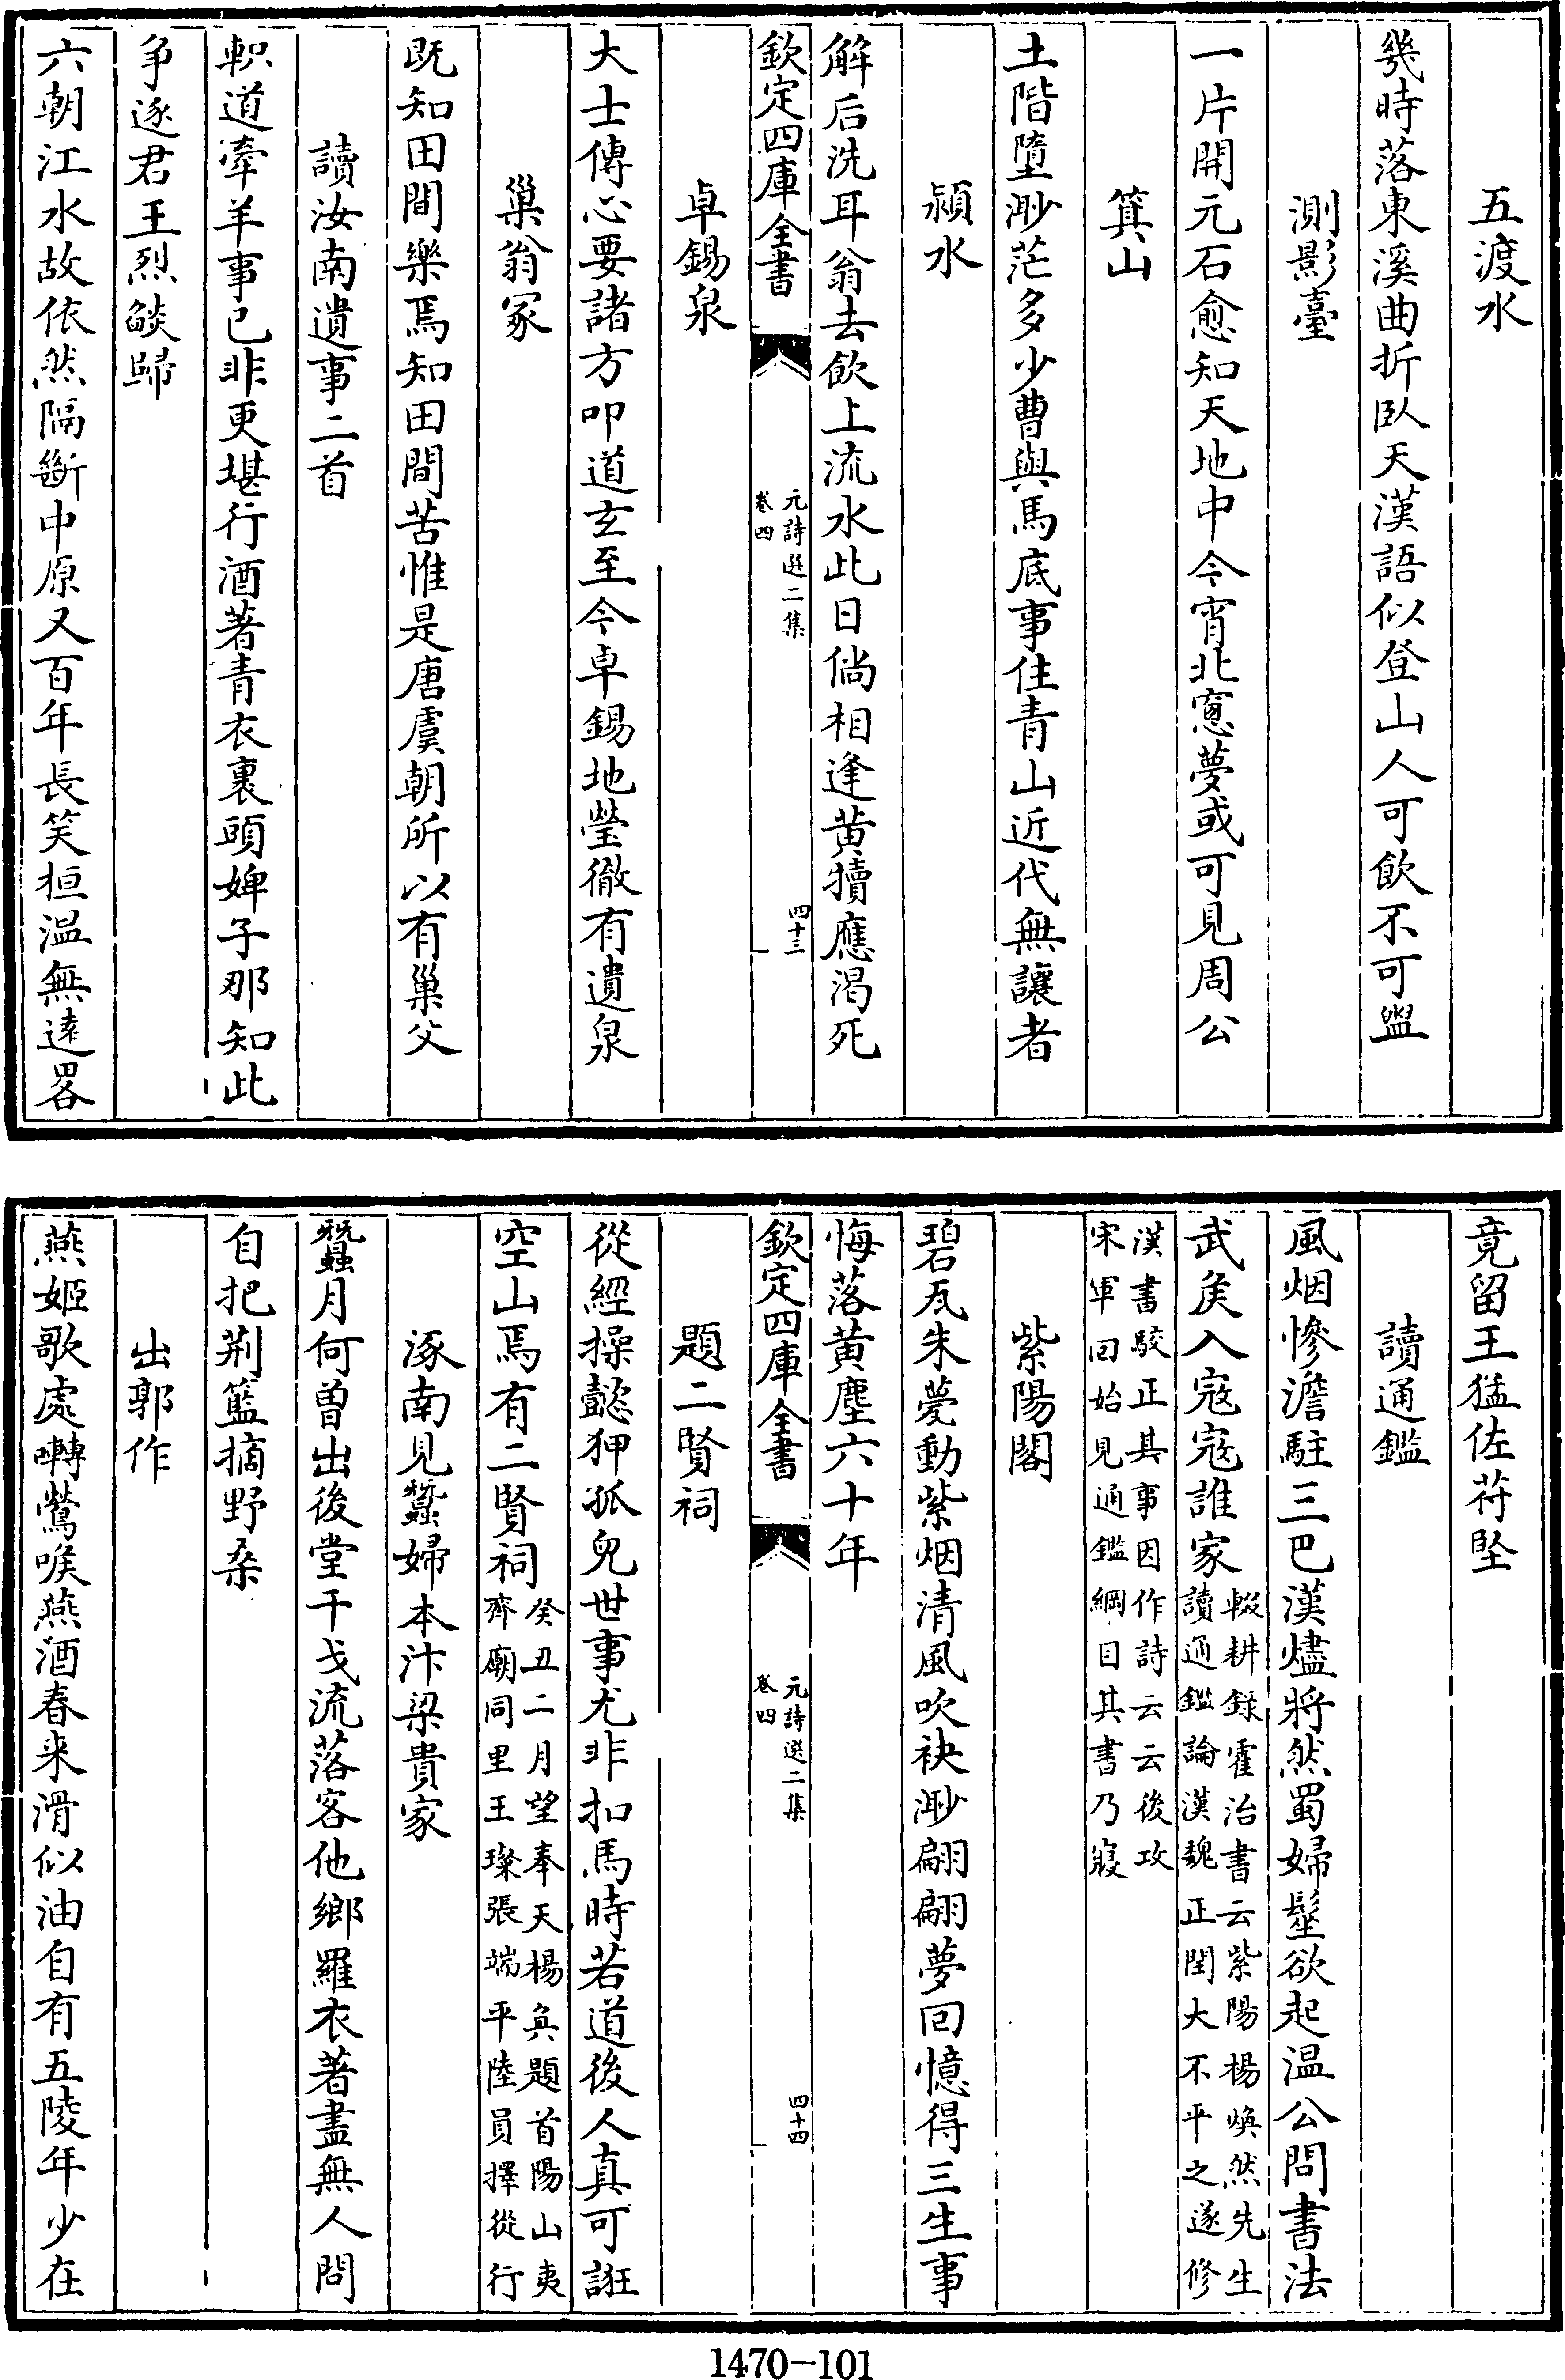 五渡水
幾時落東溪曲折臥天漢語似登山人可飲不可盥
測影臺
一片開元石愈知天地中今宵北窻夢或可見周公
箕山
土階墮渺茫多少曹與馬底事住青山近代無讓者
潁水
解后洗耳翁去飲上流水此日倘相逢黃犢應渴死
欽定四庫全書
元詩選二集
卷四
四十三
卓錫泉
大士傳心要諸方叩道玄至今卓錫地瑩徹有遺泉
巢翁冢
既知田間樂焉知田間苦惟是唐虞朝所以有巢父
讀汝南遺事二首
軹道牽羊事已非更堪行酒著青衣裏頭婢子那知此
爭逐君王烈燄歸
六朝江水故依然隔斷中原又百年長笑桓温無遠畧
竟留王猛佐苻堅
讀通鑑
風烟慘澹駐三巴漢燼將然蜀婦髽欲起温公問書法
武侯入寇寇誰家輟耕錄霍治書云紫陽楊煥然先生
讀通鑑論漢魏正閏大不平之遂修
漢書駮正其事因作詩云云後攻
宋軍回始見通鑑綱目其書乃寢
紫陽閣
碧瓦朱甍動紫烟清風吹袂渺翩翩夢回憶得三生事
悔落黃塵六十年
欽定四庫全書
元詩選二集
卷四
四十四
題二賢祠
從經操懿狎孤兒世事尤非扣馬時若道後人真可誑
空山焉有二賢祠癸丑二月望奉天楊奐題首陽山夷
齊廟同里王璨張端平陸員擇從行
涿南見蠶婦本汴梁貴家
蠶月何曾出後堂干戈流落客他鄉羅衣著盡無人問
自把荆籃摘野桑
出郭作
燕姬歌處囀鶯喉燕酒春来滑似油自有五陵年少在
1470-101